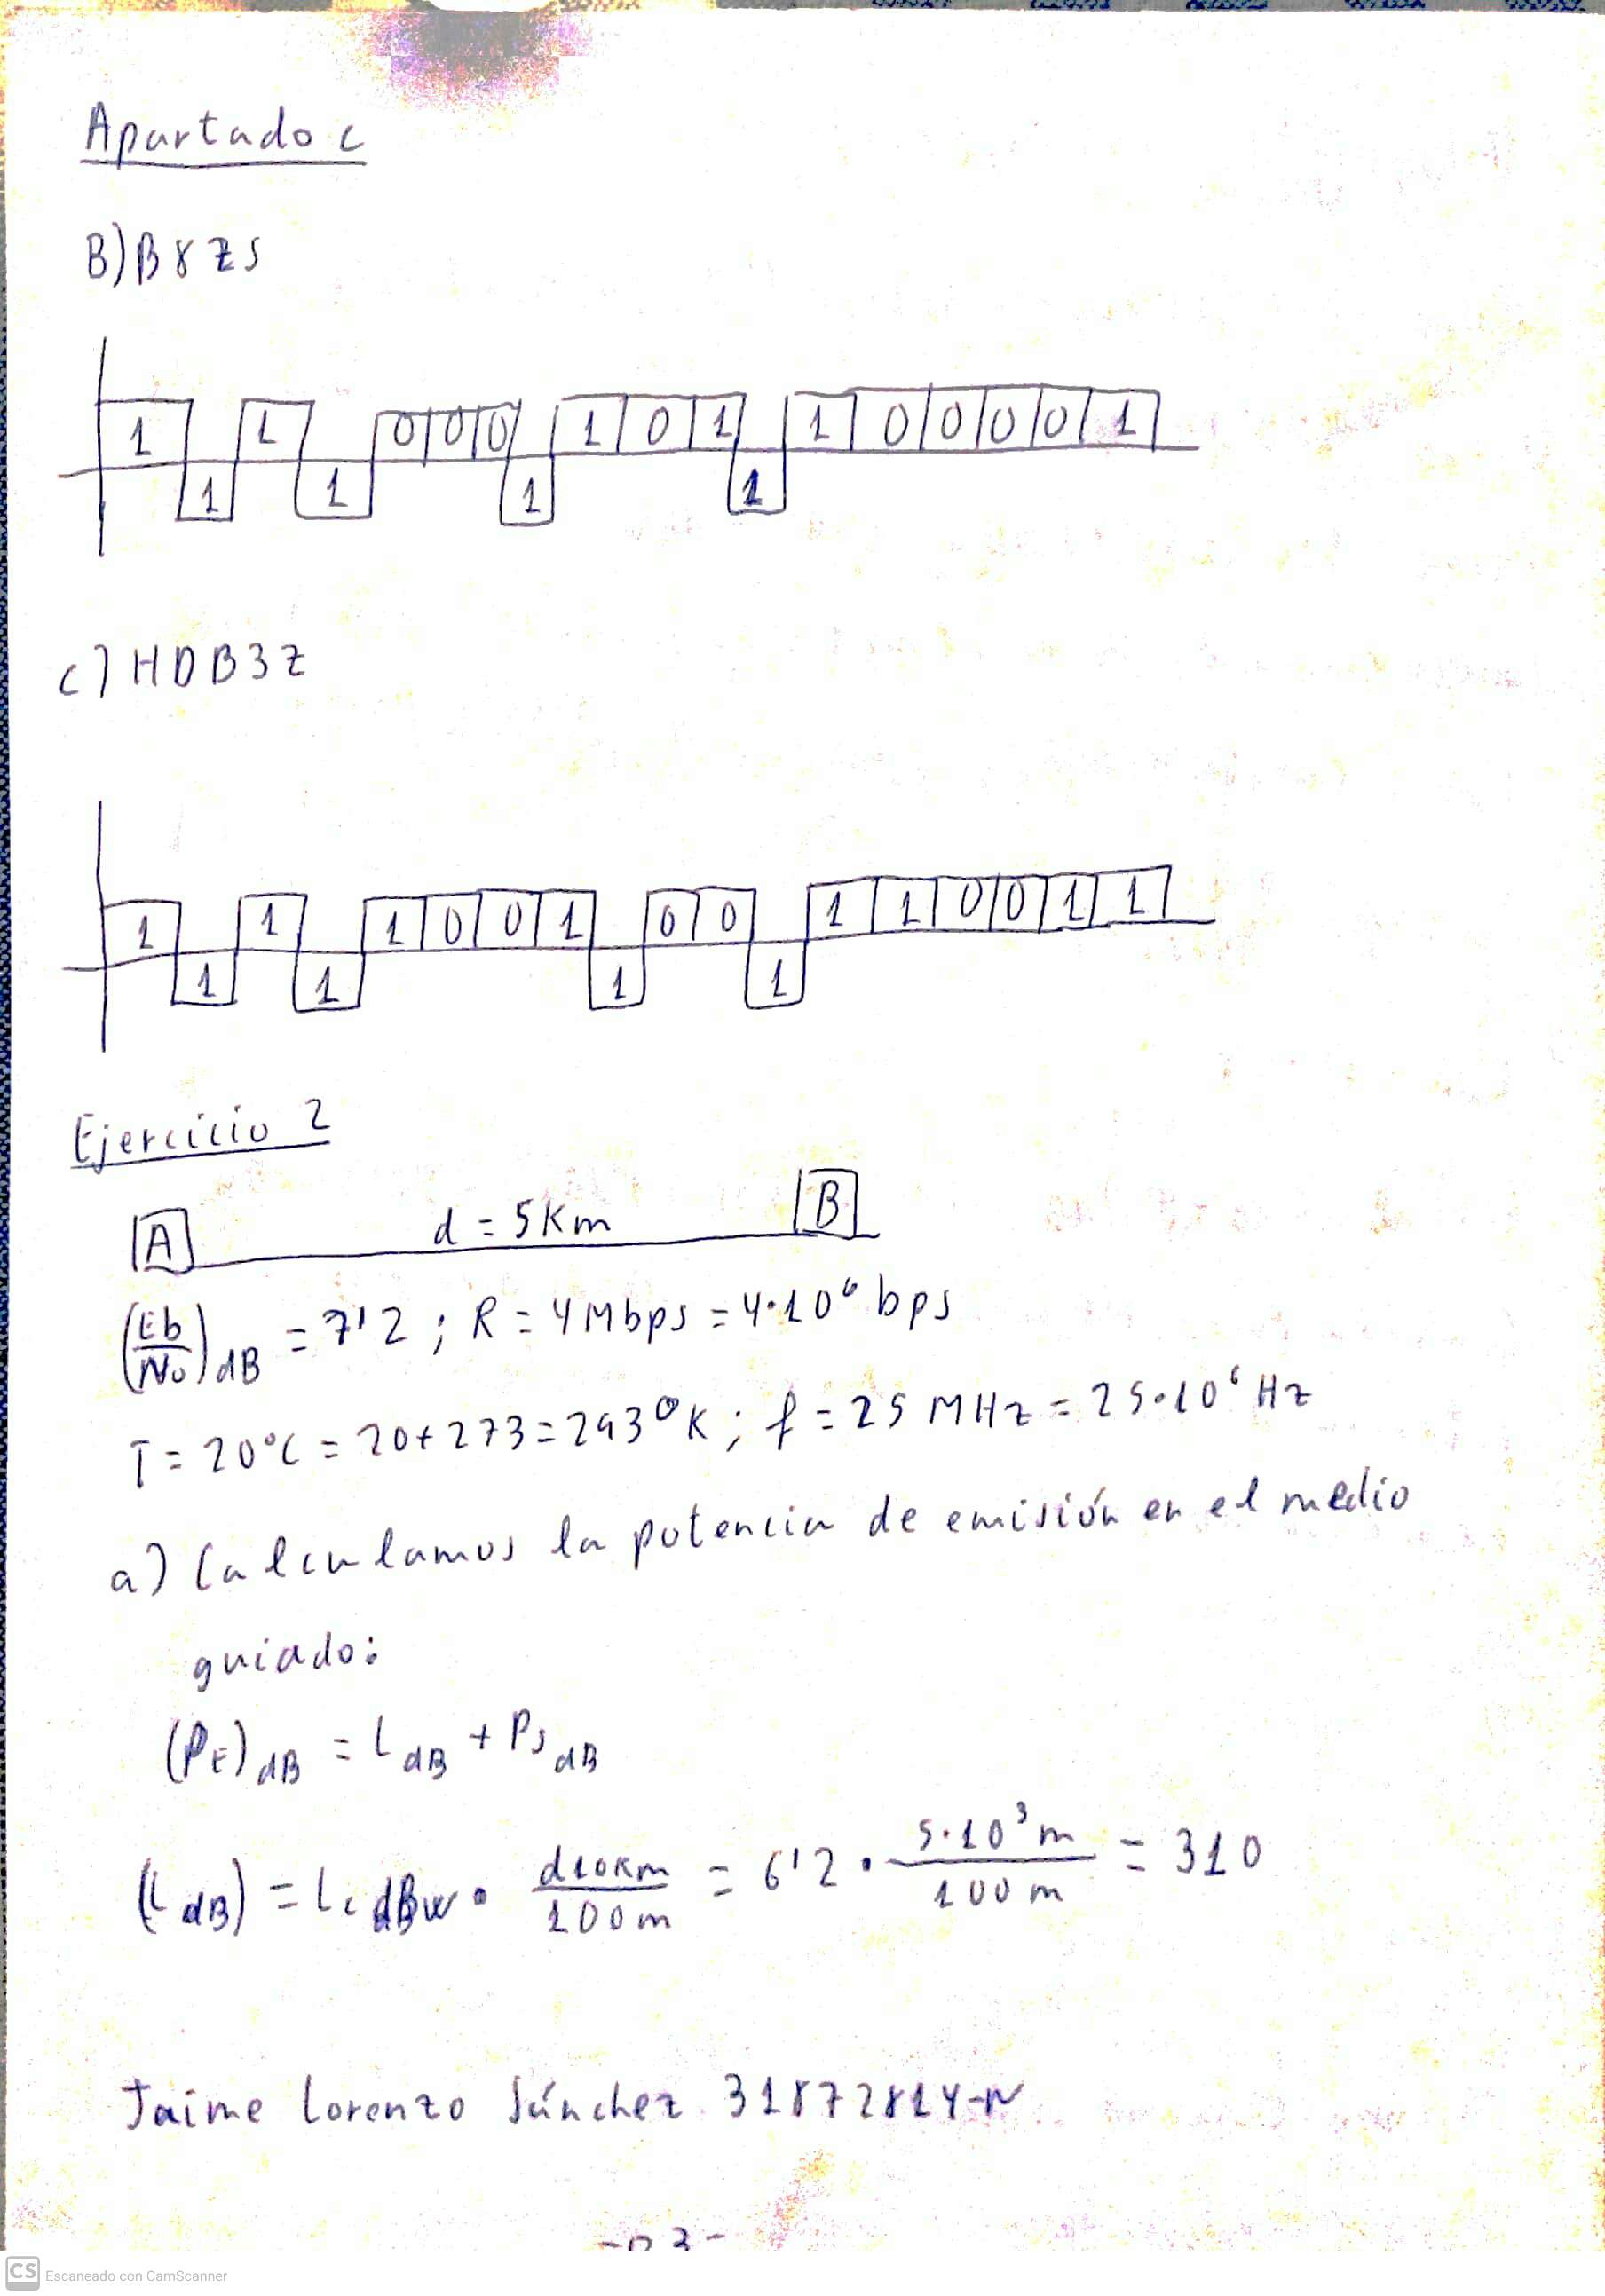 Apartado c
B) B8ZS
1 1 1 1 0 0 0 1 1 0 1 1 1 0 0 0 0 1
c) HDB3Z
1 1 1 1 1 0 0 1 1 0 0 1 1 1 0 0 1 1
Ejercicio 2
A d = 5 Km B
(Eb/No)dB = 7'2 ; R = 4 Mbps = 4·10⁶ bps
T = 20°C = 20+273 = 293°K ; f = 25 MHz = 25·10⁶ Hz
a) Calculamos la potencia de emisión en el medio
guiado:
(PE)dB = LdB + PsdB
(LdB) = Lc dBw · d10Km/100m = 6'2 · 5·10³m/100m = 310
Jaime Lorenzo Sánchez 31872814-N
CS Escaneado con CamScanner